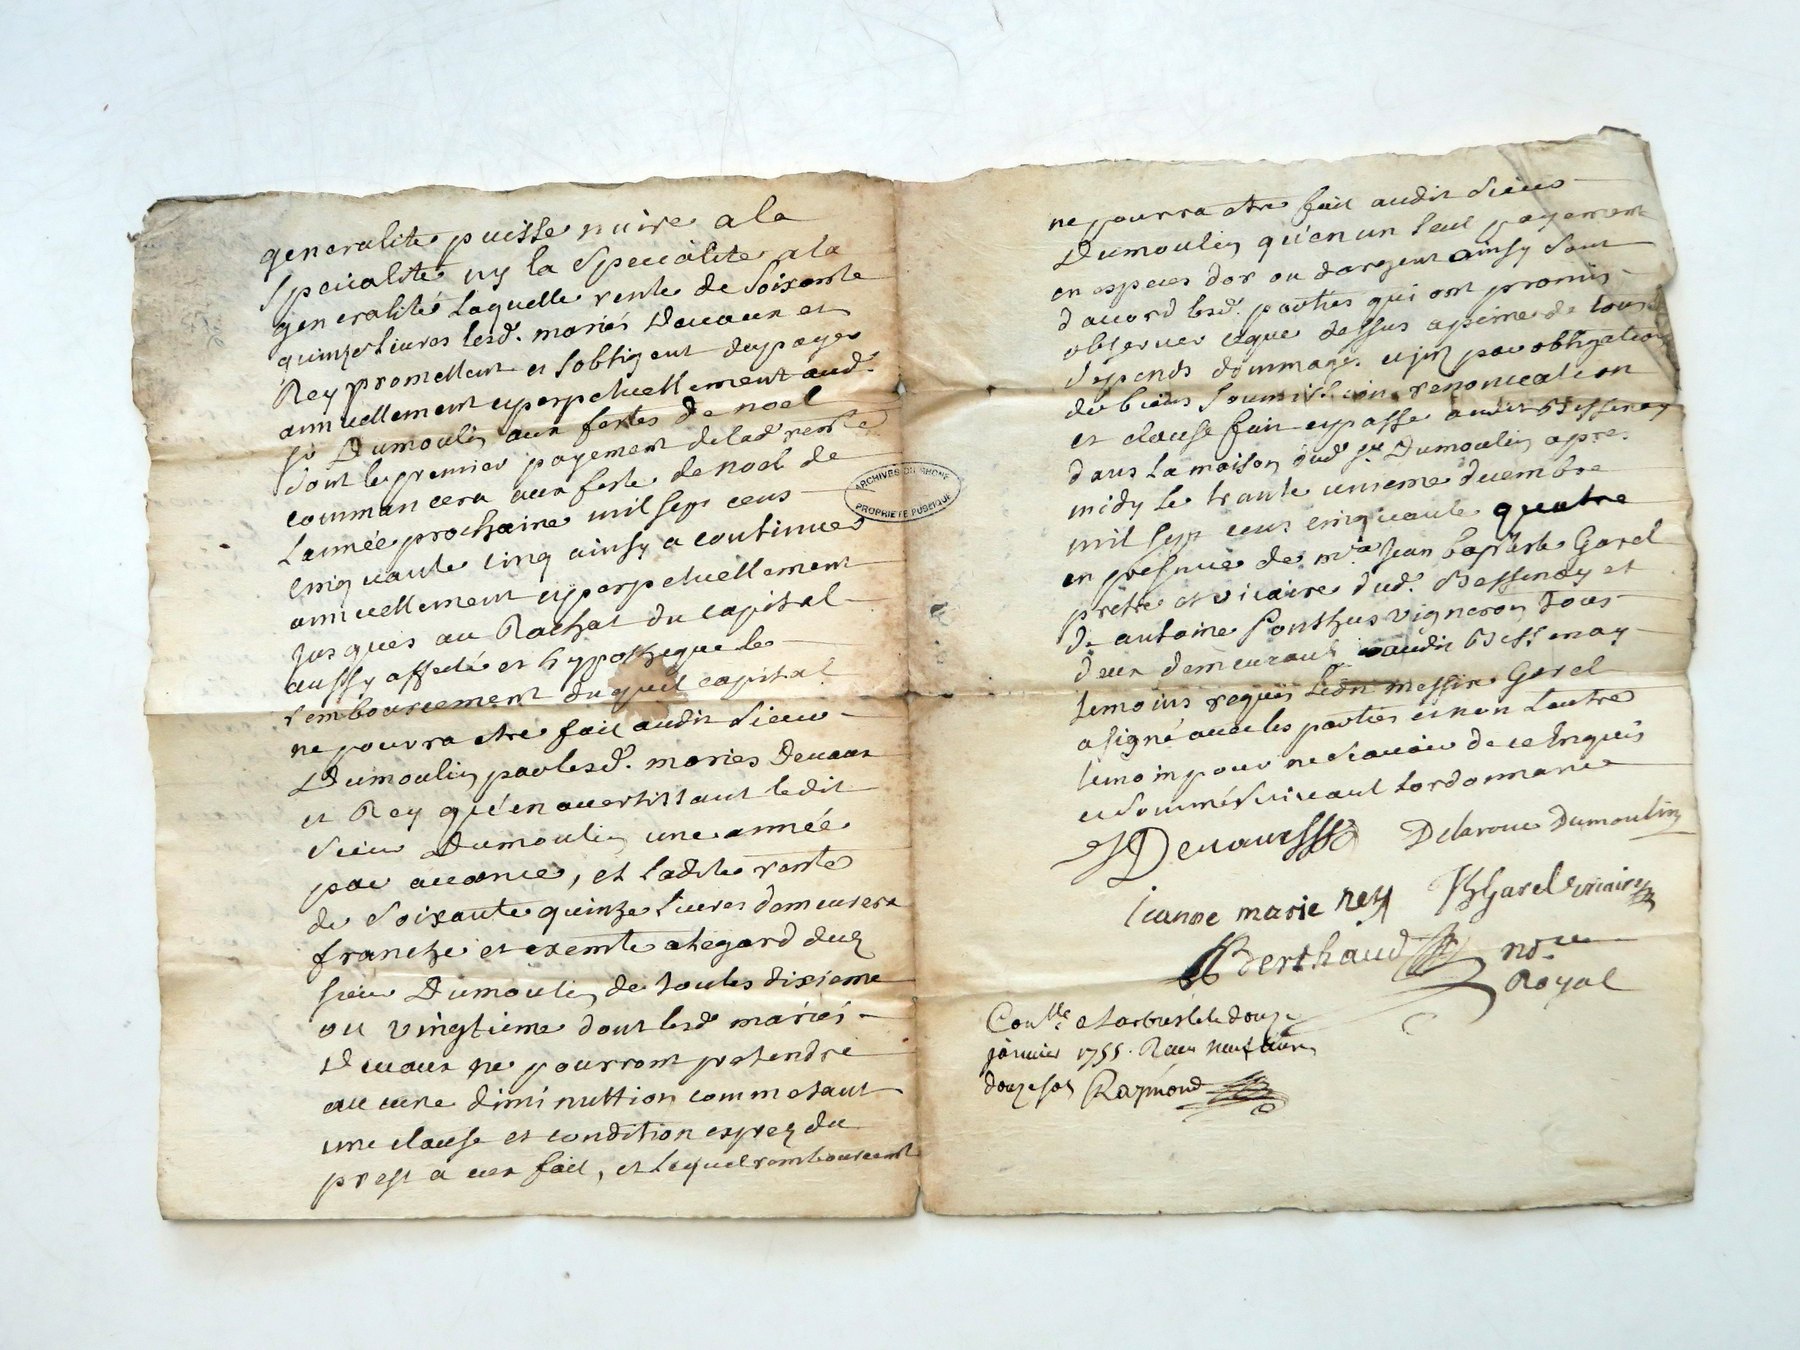 generalité puisse nuire a la
Specialité ny la Specialité a la
generalité laquelle rente de Soixante
quinze livres lesd. mariés Devaux et
Rey promettent et sobligent de payer
annuellement et perpetuellement aud.
sr Dumoulin aux festes de noel
dont le premier payement de lad. rente
commancera aux feste de noel de
Lannée prochaine mil sept cens
cinquante cinq ainsy a continuer
annuellement et perpetuellement
jusques au Rachat du capital
aussy affecté et hypotheque le
rembourcement duquel capital
ne pourra etre fait audit Sieur
Dumoulin par lesd. mariés Devaux
et Rey qu'en avertissant ledit
Sieur Dumoulin une année
par avance, et ladite rente
de Soixante quinze livres demeurera
franche et exemte a legard dud.
sieur Dumoulin de toutes dixieme
ou vingtieme dont lesd. mariés
Devaux ne pourront pretendre
aucune diminuttion comme etant
une clause et condition exprez du
prest a eux fait, et lequel rembourcement
ne pourra etre fait audit Sieur
Dumoulin qu'en un seul payement
en especes dor ou dargent ainsy sont
daccord lesd. parties qui ont promis
observer ceque dessus a peine de tous
depends dommages et par obligation
de biens Soumission renonciation
et clause fait et passé audit Bessenay
dans la maison dud. sr. Dumoulin apres
midy le trante unieme decembre
mil sept cens cinquante quatre
en presence de mre Jean baptiste Garel
prettre et vicaire dud. Bessenay et
de antoine Ponthus vigneron tous
deux demeurant audit Bessenay
temoins requis ledit messire Garel
a signé avec les parties et non Lautre
temoin pour ne Scavoir de ce Enquis
et Sommé Suivant Lordonnance
Devaux Delaroue Dumoulin
Jeanne marie Rey JBGarel vicaire
Berthaud nore
Royal
Conlle a Larbresle le douze
janvier 1755. Recu neuf livres
douze sols Raymond
ARCHIVES DU RHONE
PROPRIETE PUBLIQUE